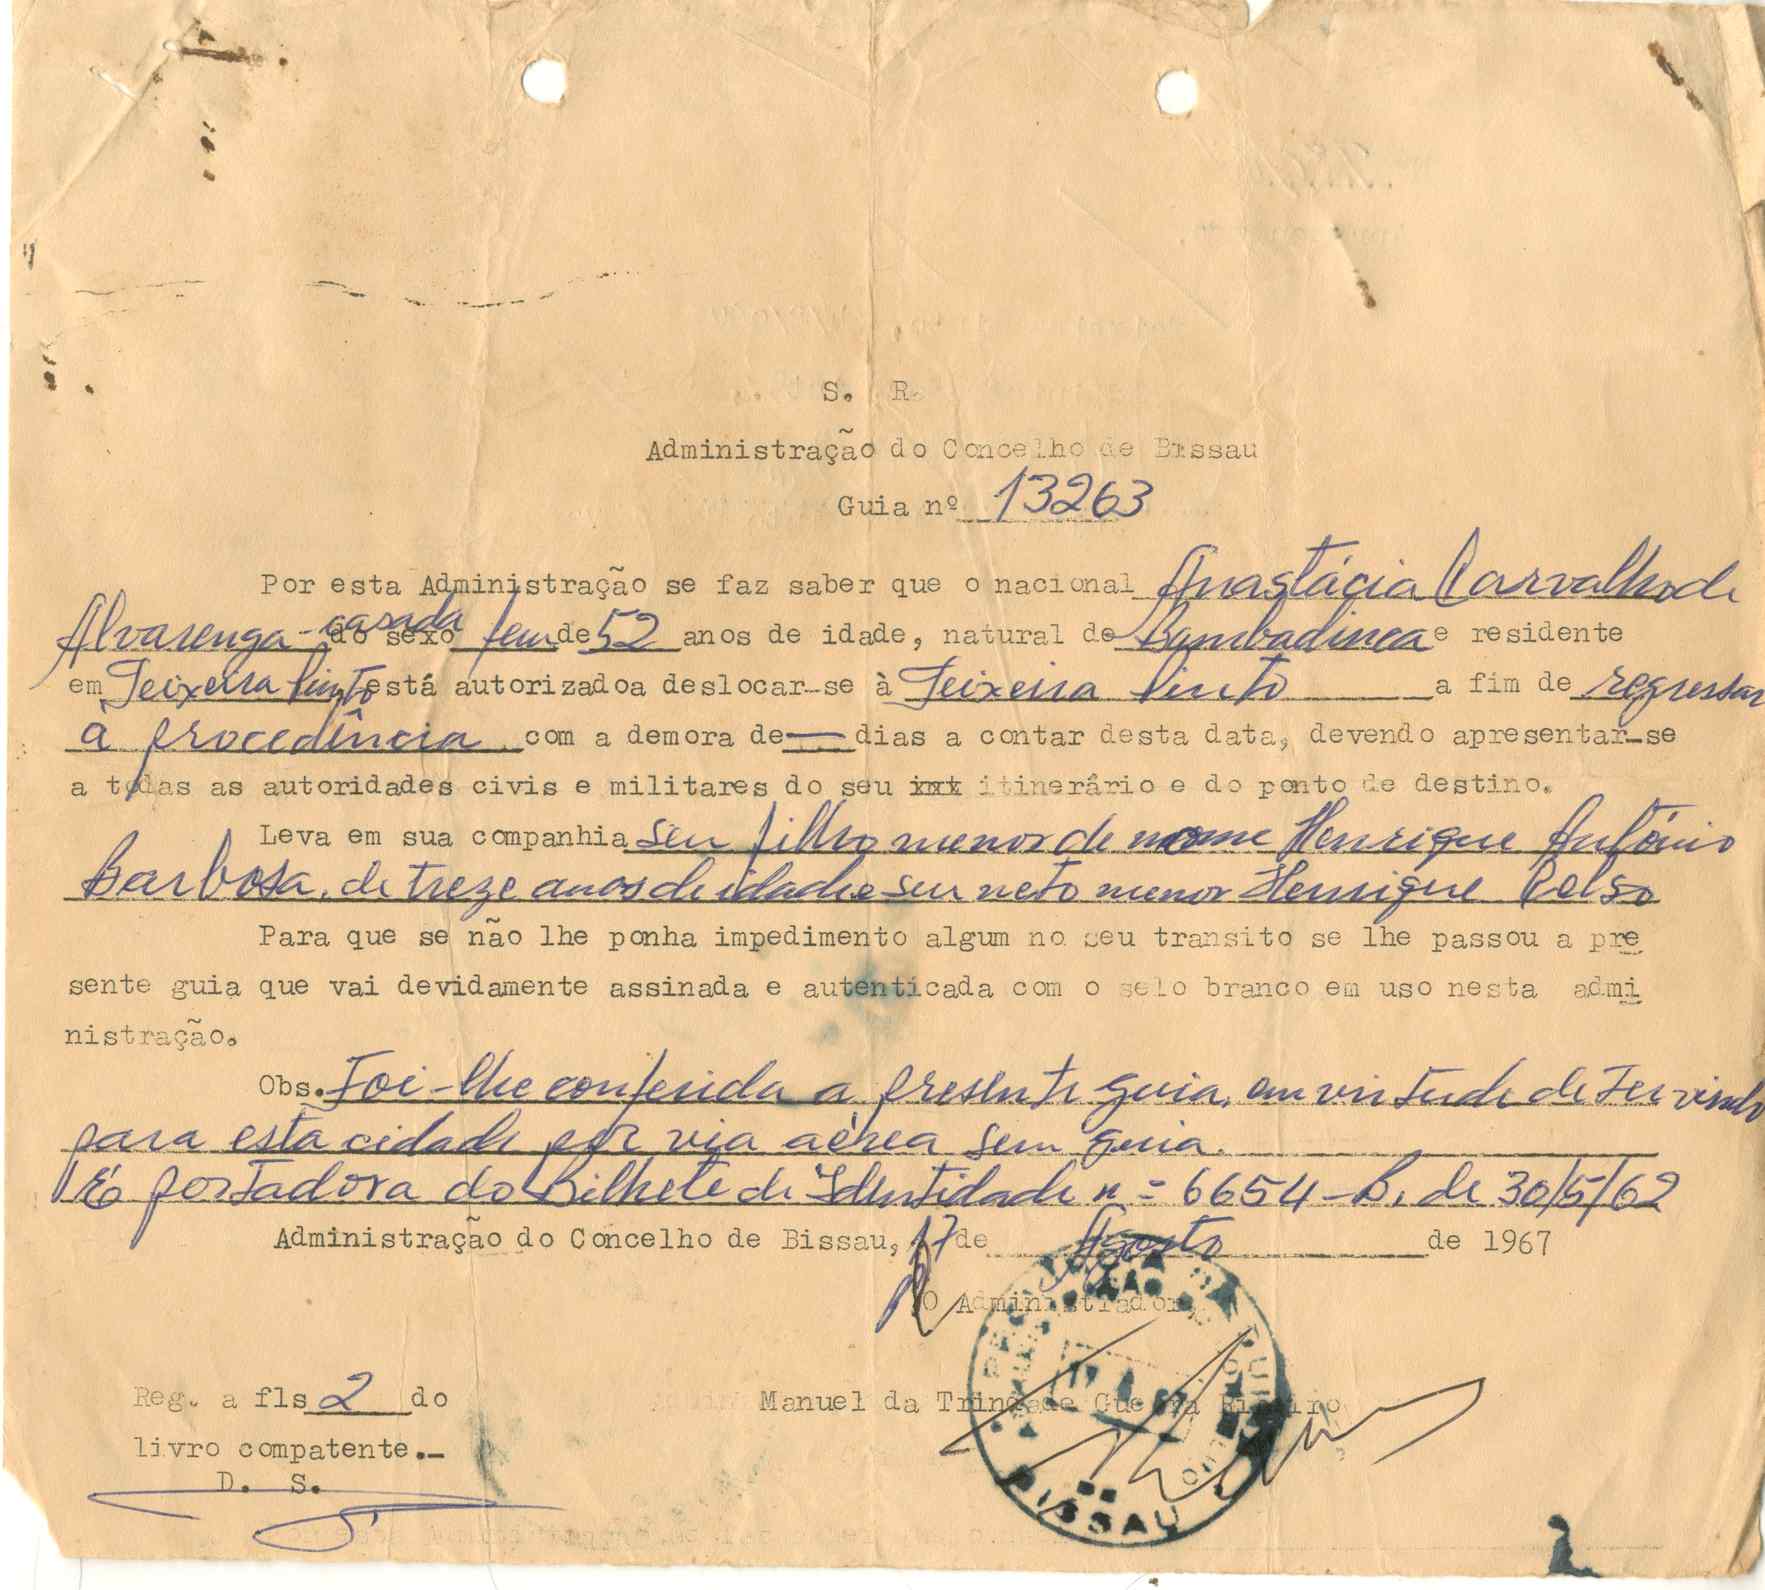 S. R.
Administração do Concelho de Bissau
Guia nº 13263
Por esta Administração se faz saber que o nacional Anastácia Carvalho de
Alvarenga - casada do sexo fem de 52 anos de idade, natural de Bambadinca e residente
em Teixeira Pinto está autorizadoa deslocar-se à Teixeira Pinto a fim de regressar
à procedência com a demora de — dias a contar desta data, devendo apresentar-se
a todas as autoridades civis e militares do seu xxx itinerârio e do ponto de destino.
Leva em sua companhia seu filho menor de nome Henrique António
Barbosa, de treze anos de idade e seu neto menor Henrique Celso
Para que se não lhe ponha impedimento algum no seu transito se lhe passou a pre
sente guia que vai devidamente assinada e autenticada com o selo branco em uso nesta admi
nistração.
Obs. Foi-lhe conferida a presente guia, em virtude de ter vindo
para esta cidade por via aérea sem guia.
É portadora do Bilhete de Identidade nº 6654-B, de 30/5/62
Administração do Concelho de Bissau, 17 de Agosto de 1967
O Administrador,
Manuel da Trindade Guerra Ribeiro
BISSAU
Reg. a fls 2 do
livro compatente.-
D. S.